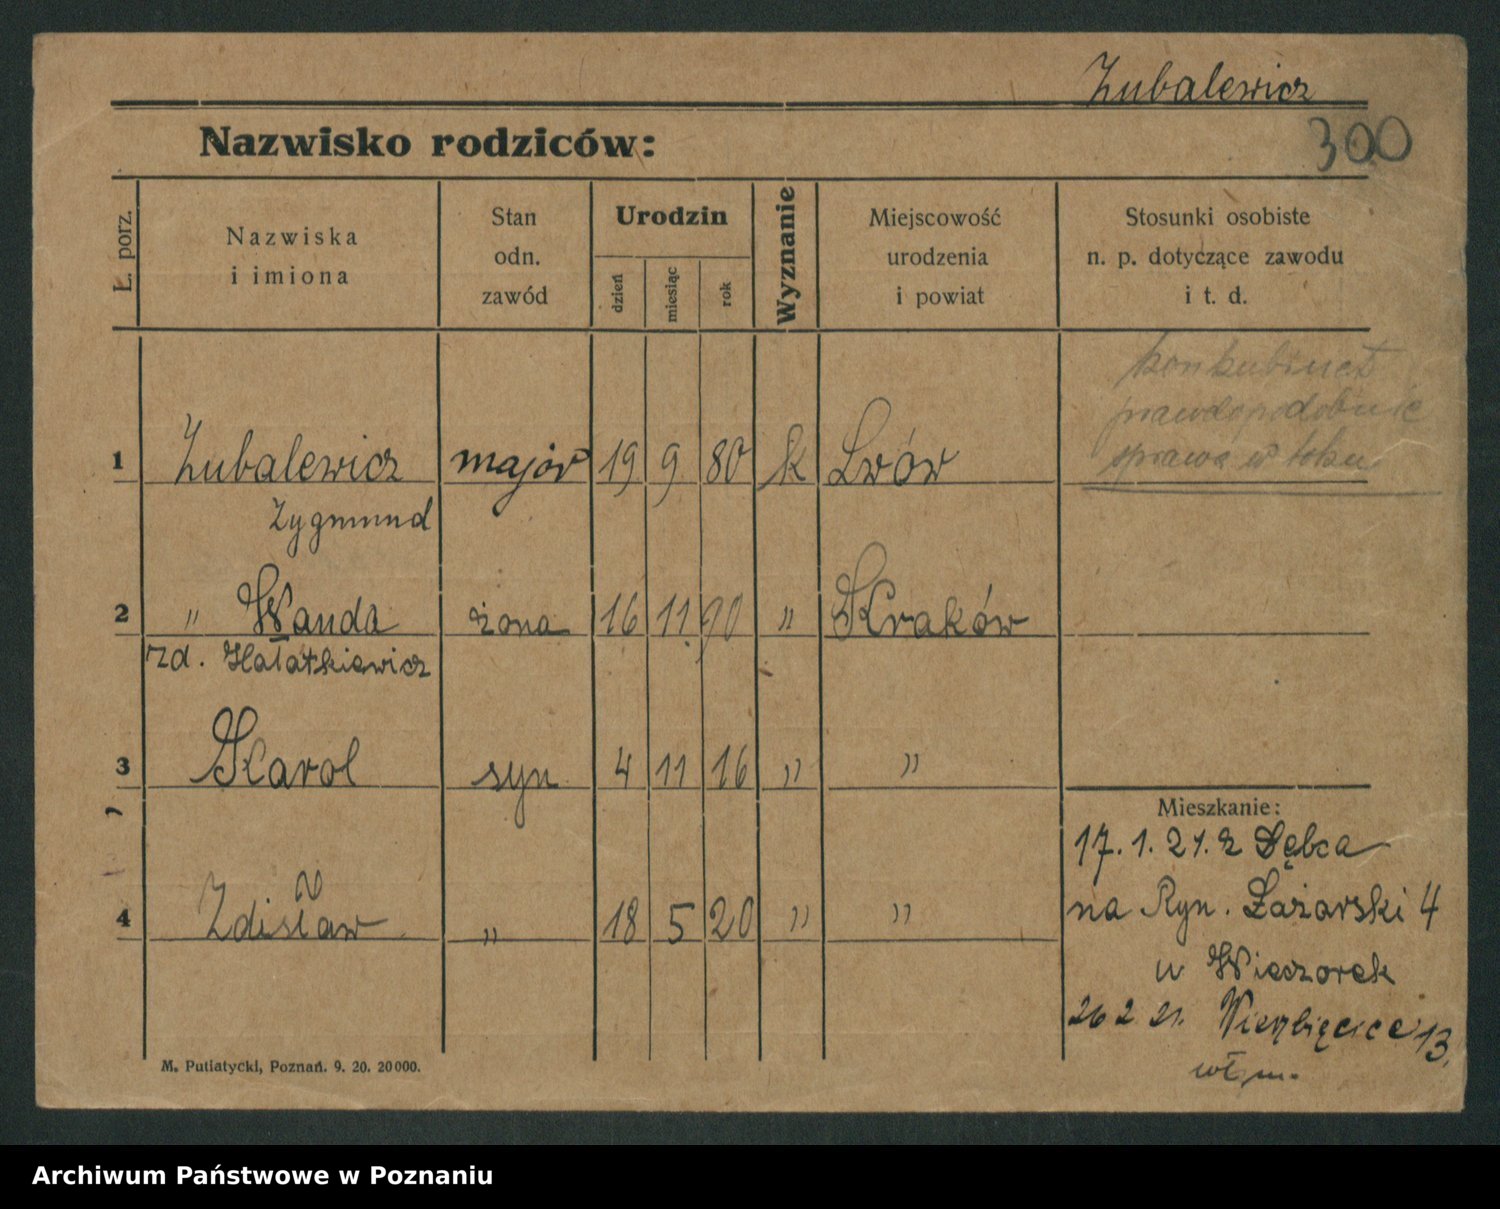 Zubalewicz
Nazwisko rodziców:
300
Ł. porz.
Nazwiska
i imiona
Stan
odn.
zawód
Urodzin
dzień
miesiąc
rok
Wyznanie
Miejscowość
urodzenia
i powiat
Stosunki osobiste
n. p. dotyczące zawodu
i t. d.
konkubinet
prawdopodobnie
sprawa w toku
1 Zubalewicz major 19 9 80 k Lwów
Zygmund
2 " Wanda żona 16 11. 90 " Kraków
zd. Hałatkiewicz
3 Karol syn 4 11 16 " "
Mieszkanie:
17. 1. 21. z Dębca
4 Zdisław " 18 5 20 " "
na Ryn. Łazarski 4
u Wieczorek
26 2 21. Wierzbięcice 13.
M. Putiatycki, Poznań. 9. 20. 20000.
Archiwum Państwowe w Poznaniu